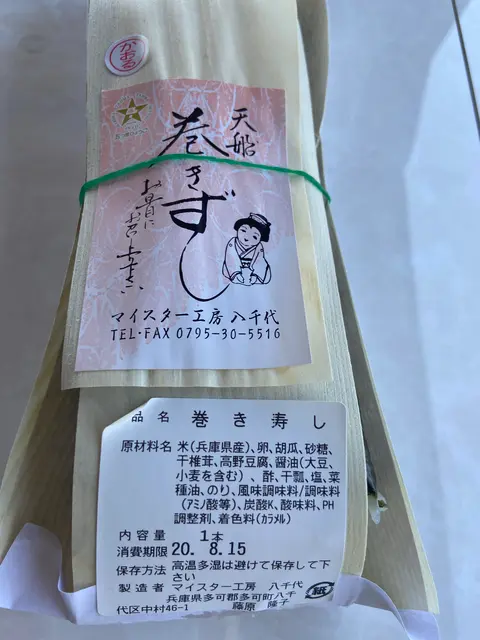 かおる
天船
巻きずし
お早目に
お召し上り下さい
マイスター工房 八千代
TEL・FAX 0795-30-5516
品名 巻き寿し
原材料名 米(兵庫県産)、卵、胡瓜、砂糖、
干椎茸、高野豆腐、醤油(大豆、
小麦を含む)、酢、干瓢、塩、菜
種油、のり、風味調味料/調味料
(アミノ酸等)、炭酸K、酸味料、PH
調整剤、着色料(カラメル)
内容量 1本
消費期限 20. 8.15
保存方法 高温多湿は避けて保存して下
さい
製造者 マイスター工房 八千代
兵庫県多可郡多可町八千
代区中村46-1 藤原 隆子
紙